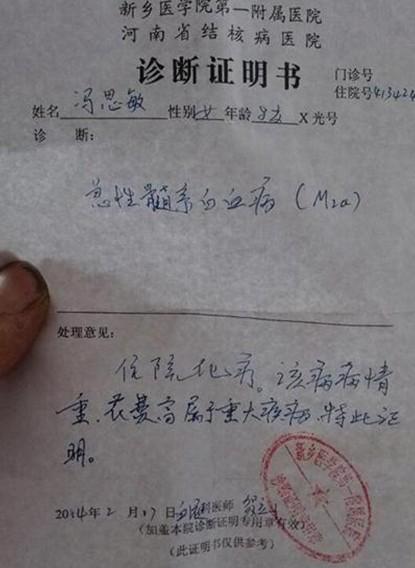 新乡医学院第一附属医院
河南省结核病医院
诊断证明书
门诊号
住院号413424
姓名 冯思敏 性别 女 年龄 8岁 X光号
诊 断:
急性髓系白血病（M2a）
处理意见:
住院化疗。该病病情
重、花费高属于重大疾病、特此证
明。
2014年2月17日 科医师
(加盖本院诊断证明专用章有效)
(此证明书仅供参考)
新乡医学院第一附属医院